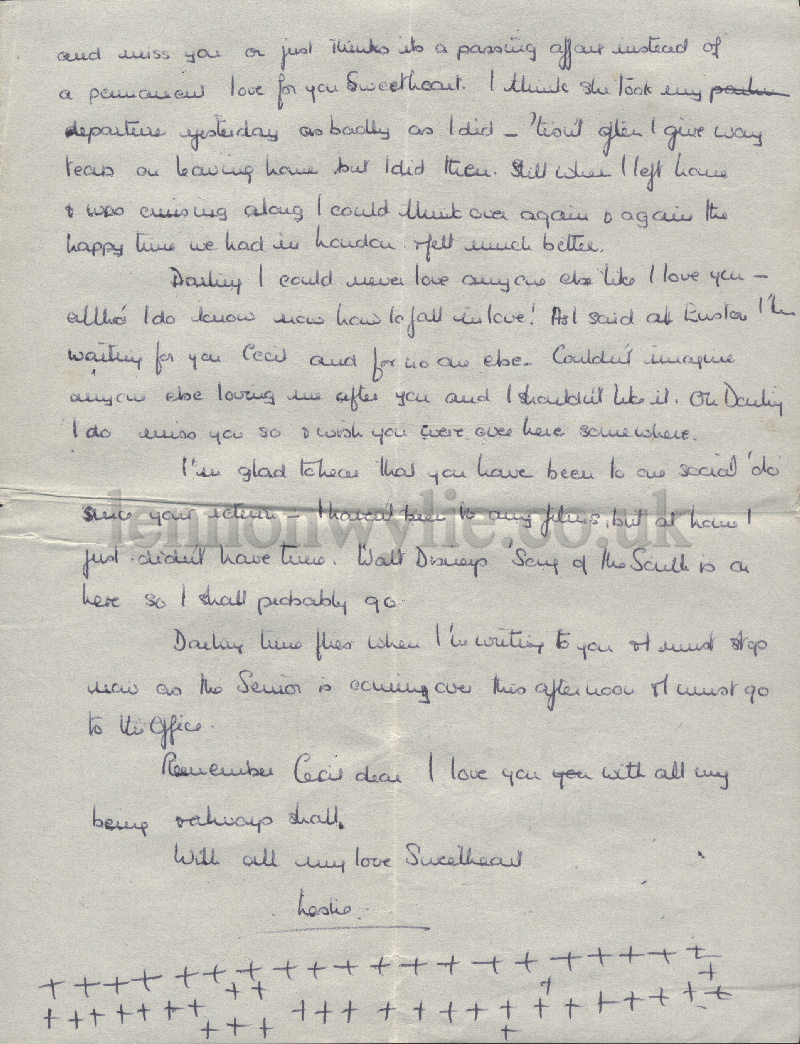 and miss you or just thinks its a passing affair instead of
a permanent love for you Sweetheart. I think she took my
departure yesterday as badly as I did – 'tisn't often I give way
tears on leaving home but I did then. Still when I left home
& was cruising along I could think over again & again the
happy time we had in London & felt much better.
Darling I could never love anyone else like I love you –
altho' I do know now how to fall in love! As I said at Euston I'm
waiting for you Cecil and for no one else. Couldn't imagine
anyone else loving me after you and I shouldn't like it. Oh Darling
I do miss you so & wish you were over here somewhere.
I'm glad to hear that you have been to one social 'do
since your return – I haven't been to any films, but at home I
just didn't have time. Walt Disneys 'Song of the South is on
here so I shall probably go.
Darling time flies when I'm writing to you & I must stop
now as the Senior is coming over this afternoon & I must go
to the Office.
Remember Cecil dear I love you you with all my
being & always shall.
With all my love Sweetheart
Leslie.
+ + + + + + + + + + + + + + + + + + + +
+ + + +
+ + + + + + + + + + + + + + + + + + + +
+ + + +
lennonwylie.co.uk